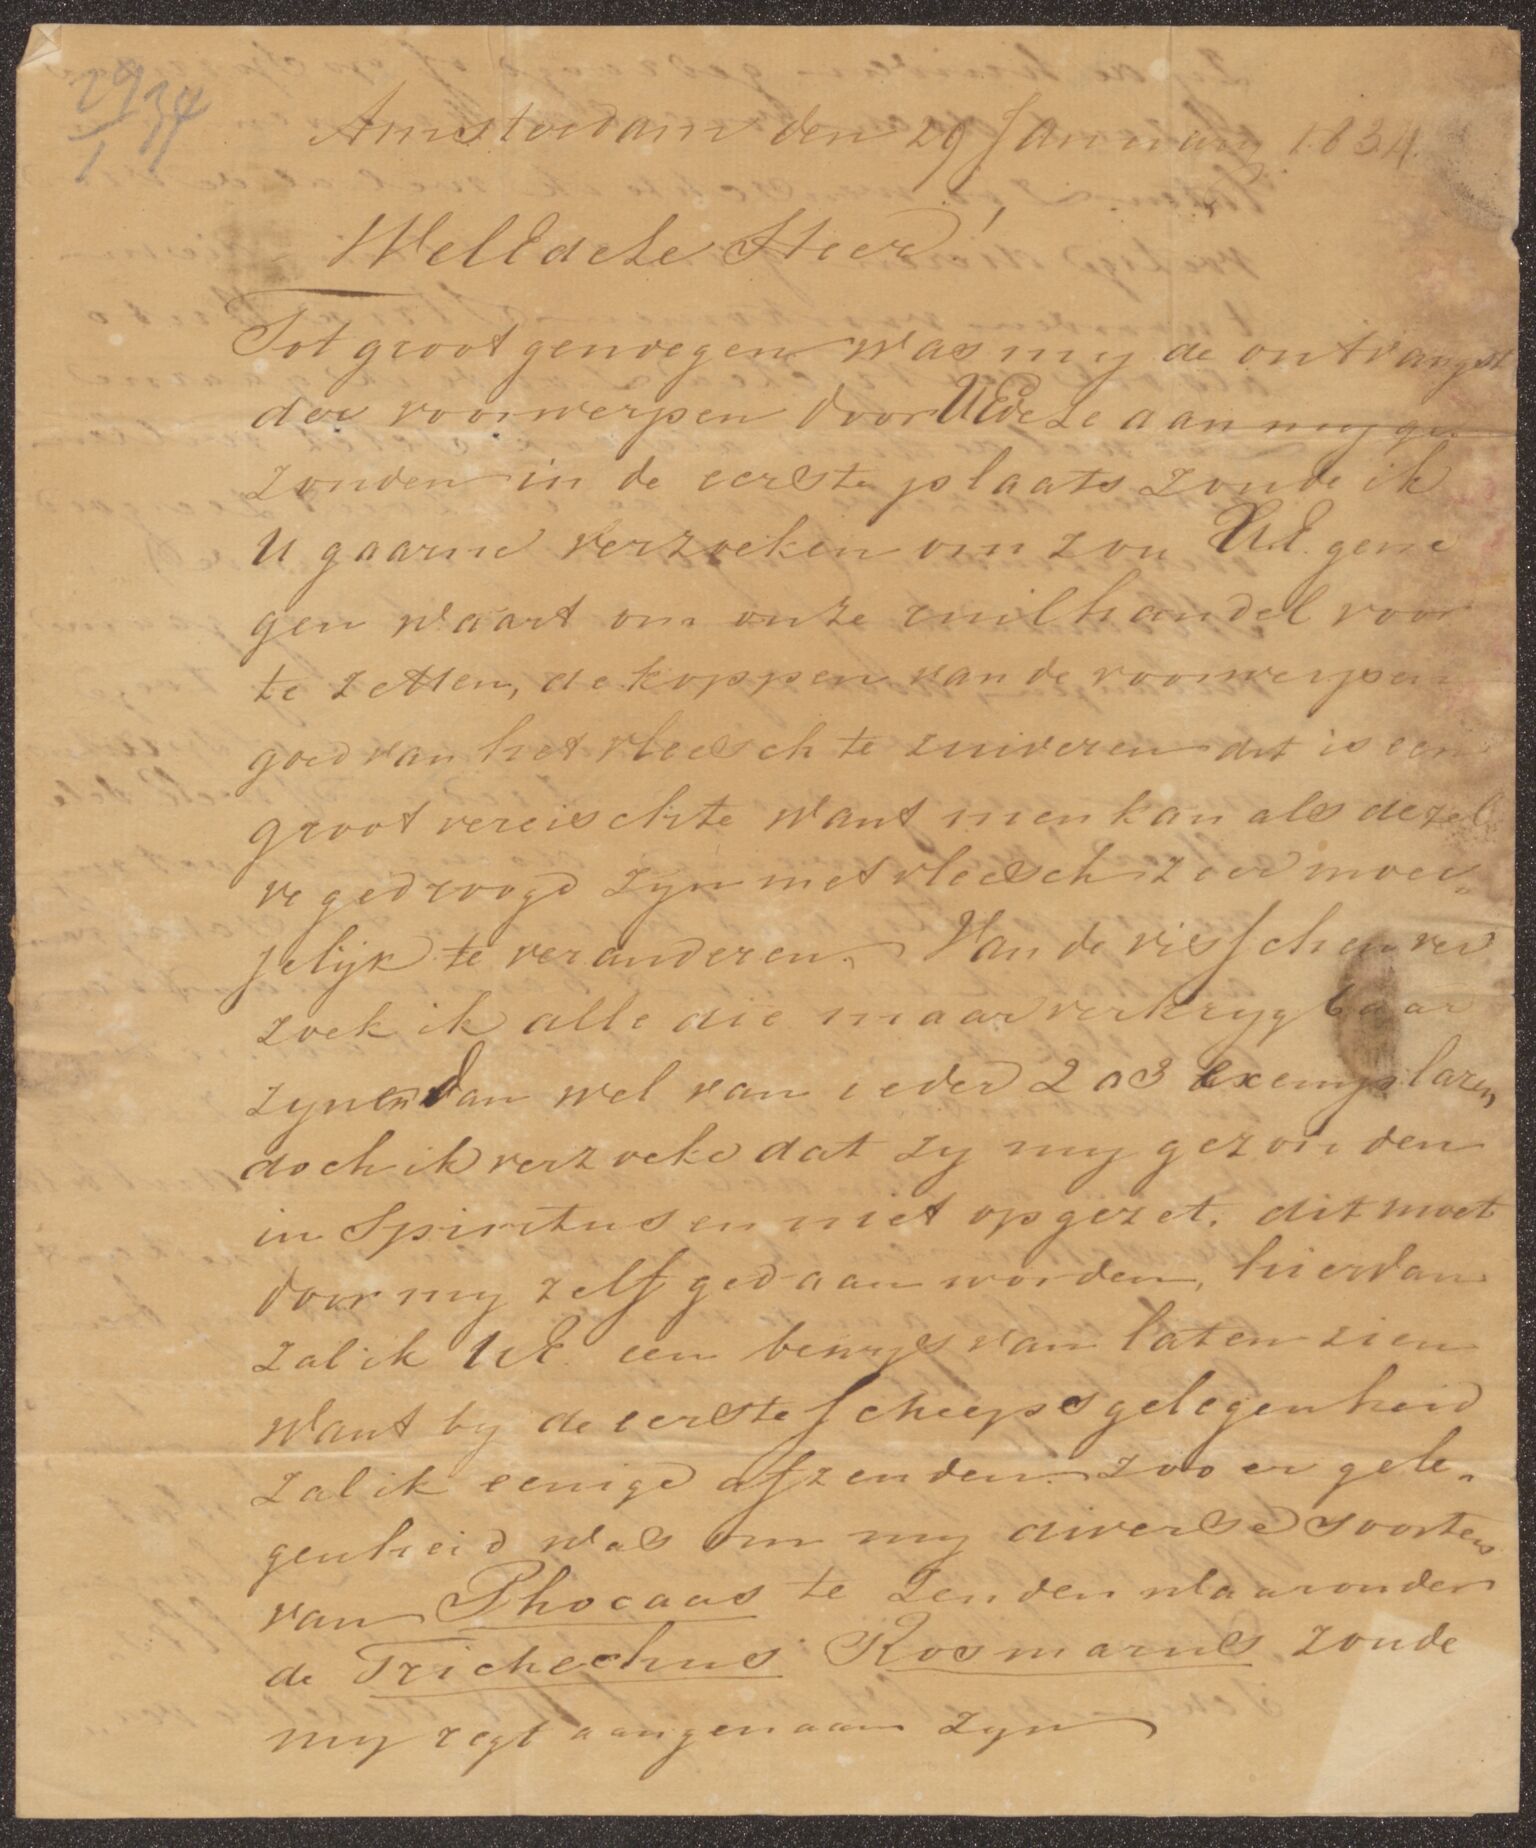 29/1 34
Amsterdam den 29 January 1834.
WelEdele Heer!
Tot groot genoegen was my de ontvangst
der voorwerpen door UEdele aan my ge
zonden in de eerste plaats zoude ik
U gaarne verzoeken om zou U.E. gene
gen waart om onze ruilhandel voor
te zetten, de koppen van de voorwerpen
goed van het vleesch te zuiveren dit is een
groot vereischte want men kan als dezel
ve gedroogd zyn met vleesch zeer moei„
jelijk te veranderen. Van de visschen ver
zoek ik alle die maar verkrygbaar
zyn en dan wel van ieder 2 a 3 exemplaren
doch ik verzoeke dat zy my gezonden
in Spiritus en niet opgezet. dit moet
door my zelf gedaan worden, hiervan
zal ik UE. een bewys van laten zien
want by de eerste scheepsgelegenheid
zal ik eenige afzenden zoo er gele„
genheid was om my diverse soorten
van Phocaas te zenden waaronder
de Trichechus Rosmarus zoude
my regt aangenaam zyn